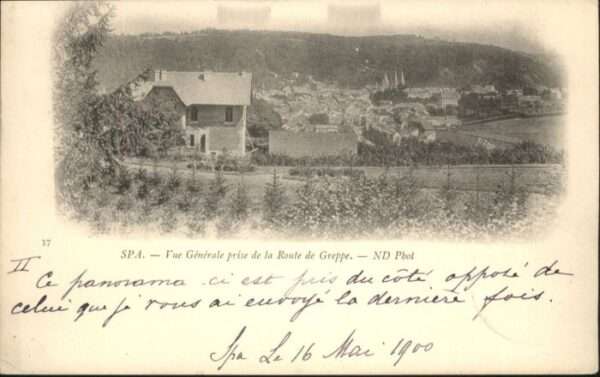 17
SPA. — Vue Générale prise de la Route de Creppe. — ND Phot
II
Ce panorama ci est pris du côté opposé de
celui que je vous ai envoyé la dernière fois.
Spa Le 16 Mai 1900